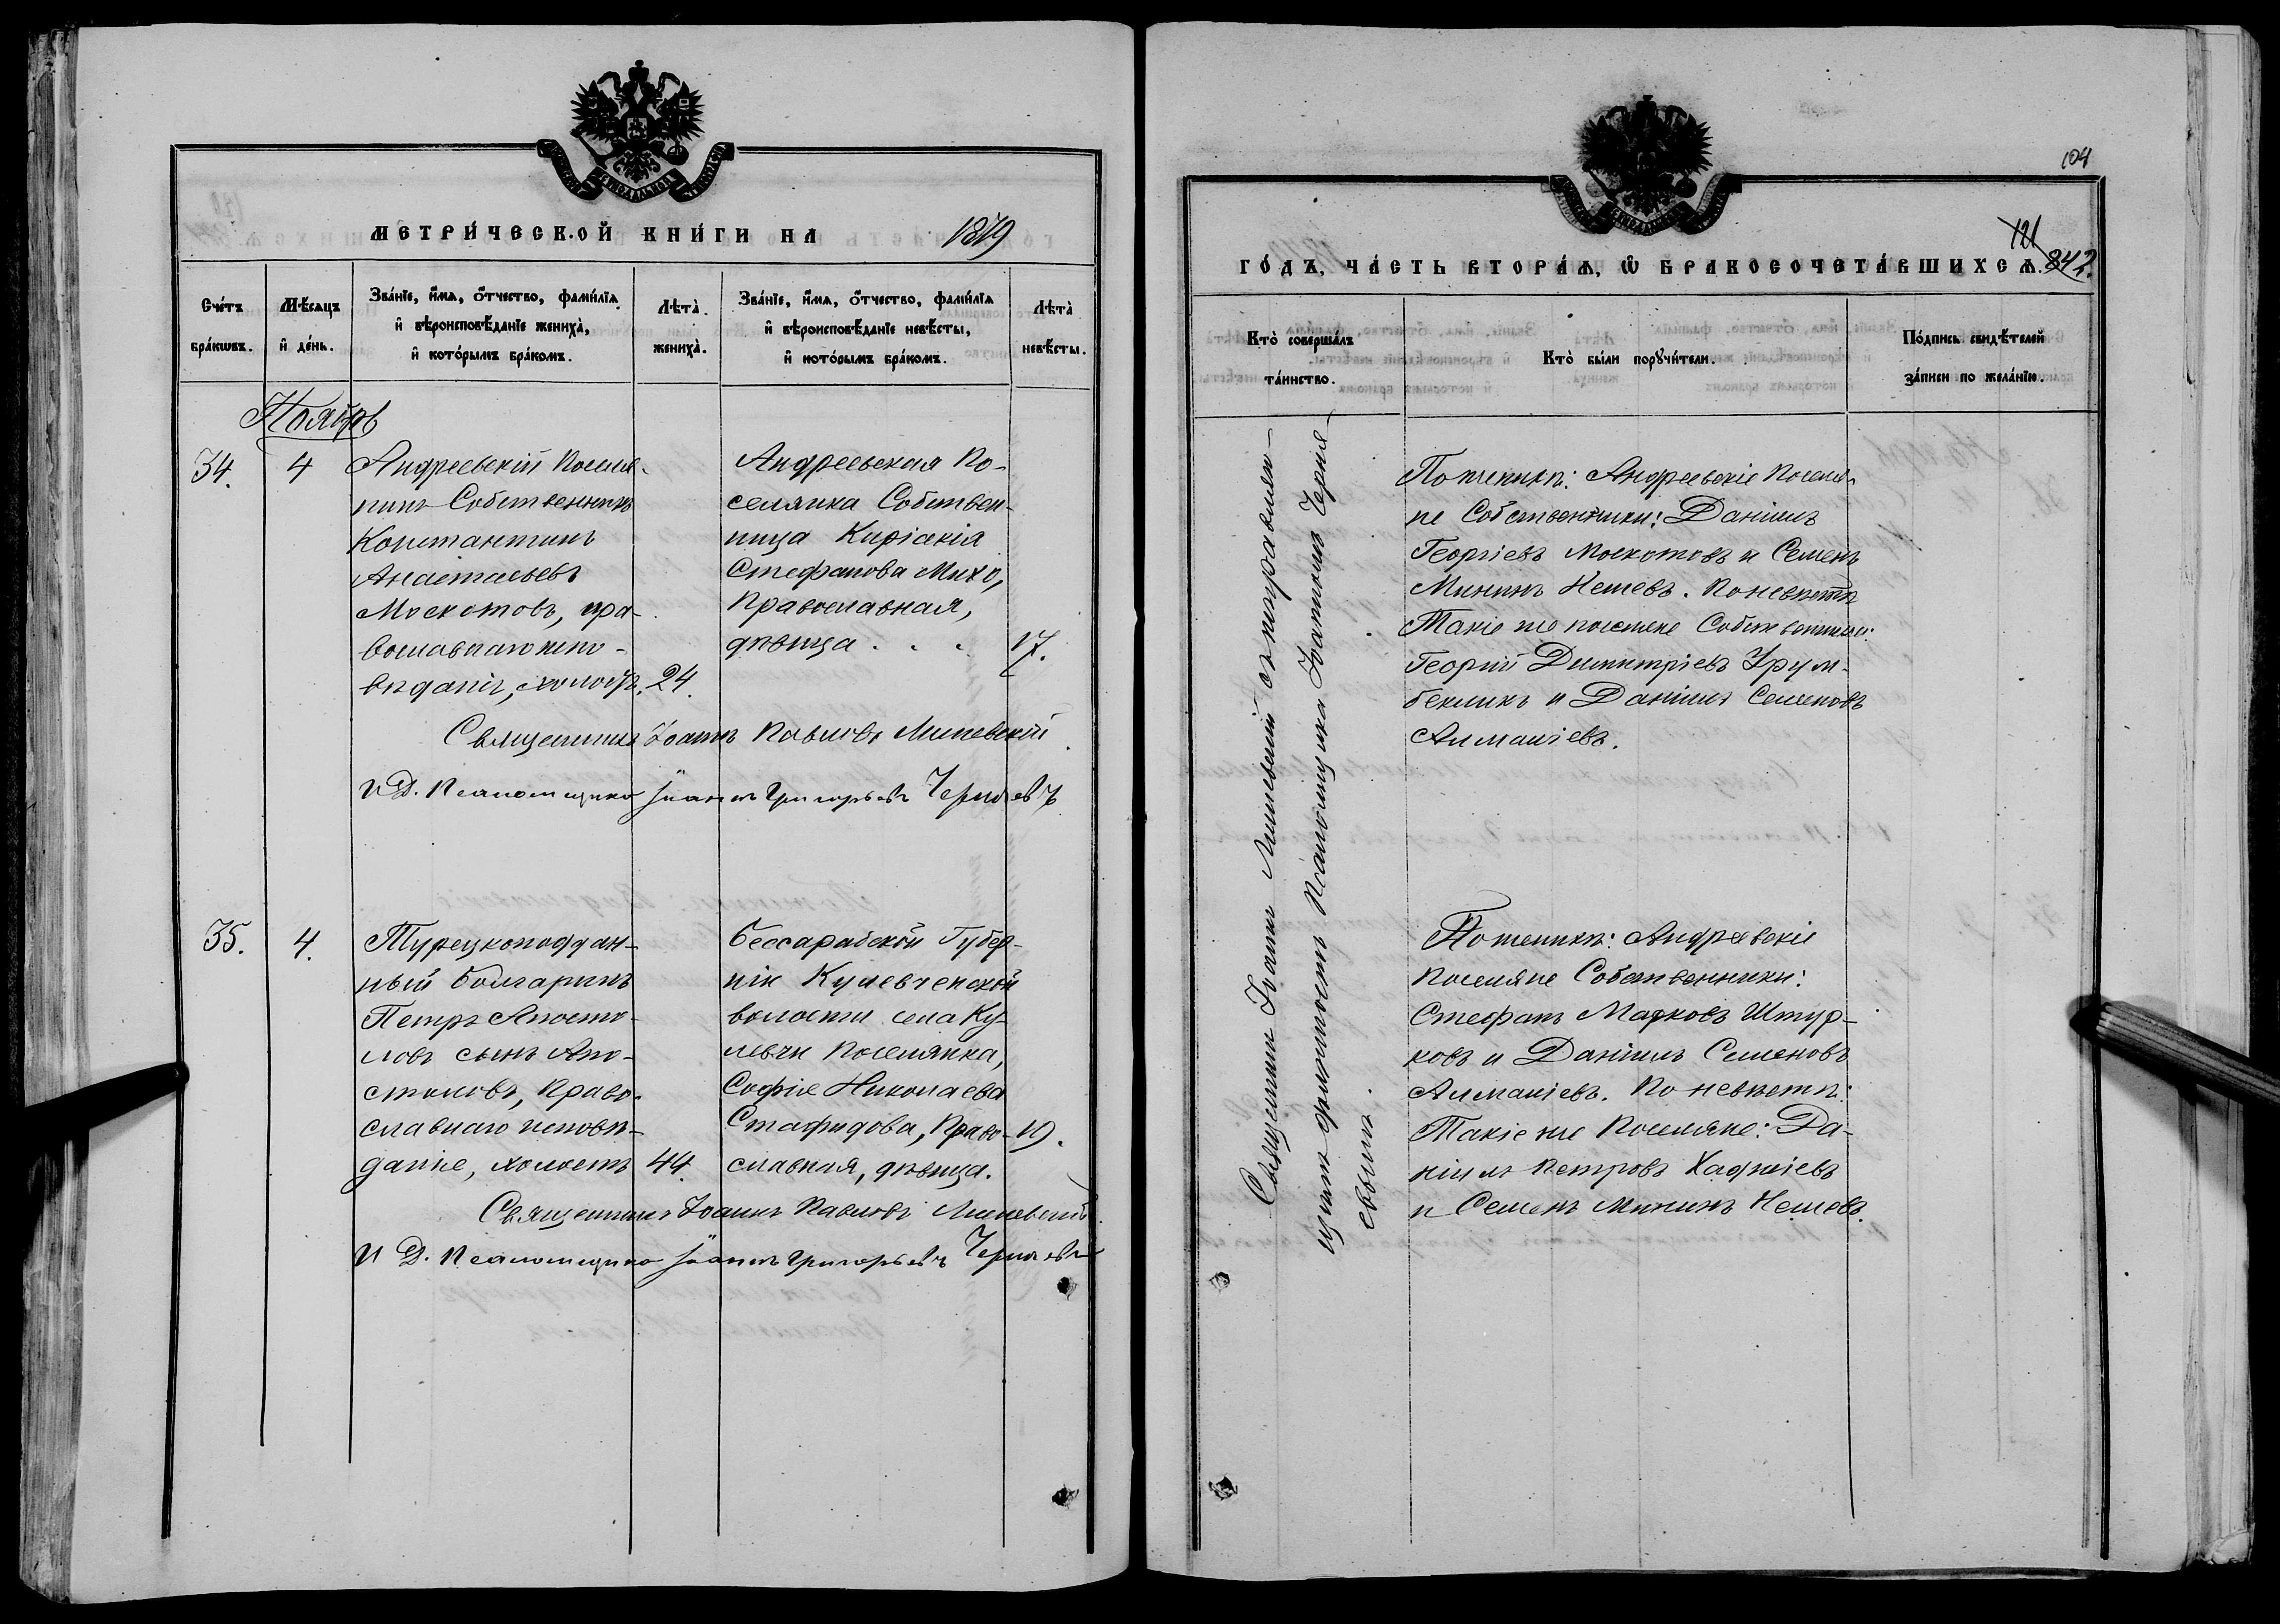 МЕТРИ́ЧЕСКОЙ КНИ́ГИ НА 1879
Сче́тъ бра́кѡвъ.
Мѣ́сѧцъ и҆ де́нь.
Зва́нїе, и҆́мѧ, ѻ҆́тчество, фами́лїѧ
и҆ вѣроисповѣ́данїе жениха̀,
и҆ кото́рымъ бра́комъ.
Лѣта̀ жениха̀.
Зва́нїе, и҆́мѧ, ѻ҆́тчество, фами́лїѧ
и҆ вѣроисповѣ́данїе невѣ́сты,
и҆ кото́рымъ бра́комъ.
Лѣта̀ невѣ́сты.
Ноябрь
34.
4
Андреевскій Поселя-
нинъ Собственникъ
Константинъ
Анастасьевъ
Москотовъ, пра-
вославнаго испо-
вѣданія, холостъ,
24.
Андреевская По-
селянка Собствен-
ница Киріакія
Стефанова Михо,
Православная,
дѣвица . . .
17.
Священникъ Іоаннъ Павловъ Миневскій
И Д. Псаломщика Іоанъ Григорьевъ Черняевъ
35.
4.
Турецкоподдан-
ный болгаринъ
Петръ Аносто-
ловъ сынъ Апо-
столовъ, Право-
славнаго исповѣ-
данія, холостъ
44.
Бессарабской Губер-
ніи Кулевченской
волости села Ку-
левчи Поселянка,
Софія Николаева
Стафидова, Право-
славная, дѣвица.
19.
Священникъ Іоаннъ Павловъ Миневскій
И Д. Псаломщика Іоанъ Григорьевъ Черняевъ
104
121
842.
ГО́ДЪ, ЧА́СТЬ ВТОРА́Ѧ, Ѡ҆ БРАКОСОЧЕТА́ВШИХСѦ.
Кто̀ соверша́лъ
та́инство.
Кто̀ бы́ли порꙋчи́тели.
По́дпись свидѣ́телей
за́писи по жела́нїю.
Священникъ Іоаннъ Миневскій съ исправляю-
щимъ должность Псаломщика Іоанномъ Черня-
евымъ.
По женихѣ: Андреевскіе Поселя-
не Собственники: Даніилъ
Георгіевъ Москотовъ и Семенъ
Мининъ Нешевъ. По невѣстѣ
Такіе же поселяне Собственники:
Георгій Димитріевъ Урум-
бекликъ и Даніилъ Семеновъ
Алмашіевъ.
По женихѣ: Андреевскіе
Поселяне Собственники:
Стефанъ Марковъ Штур-
ковъ и Даніилъ Семеновъ
Алмашіевъ. По невѣстѣ:
Такіе же Поселяне: Да-
ніилъ Петровъ Хаджіевъ
и Семенъ Мининъ Нешевъ.